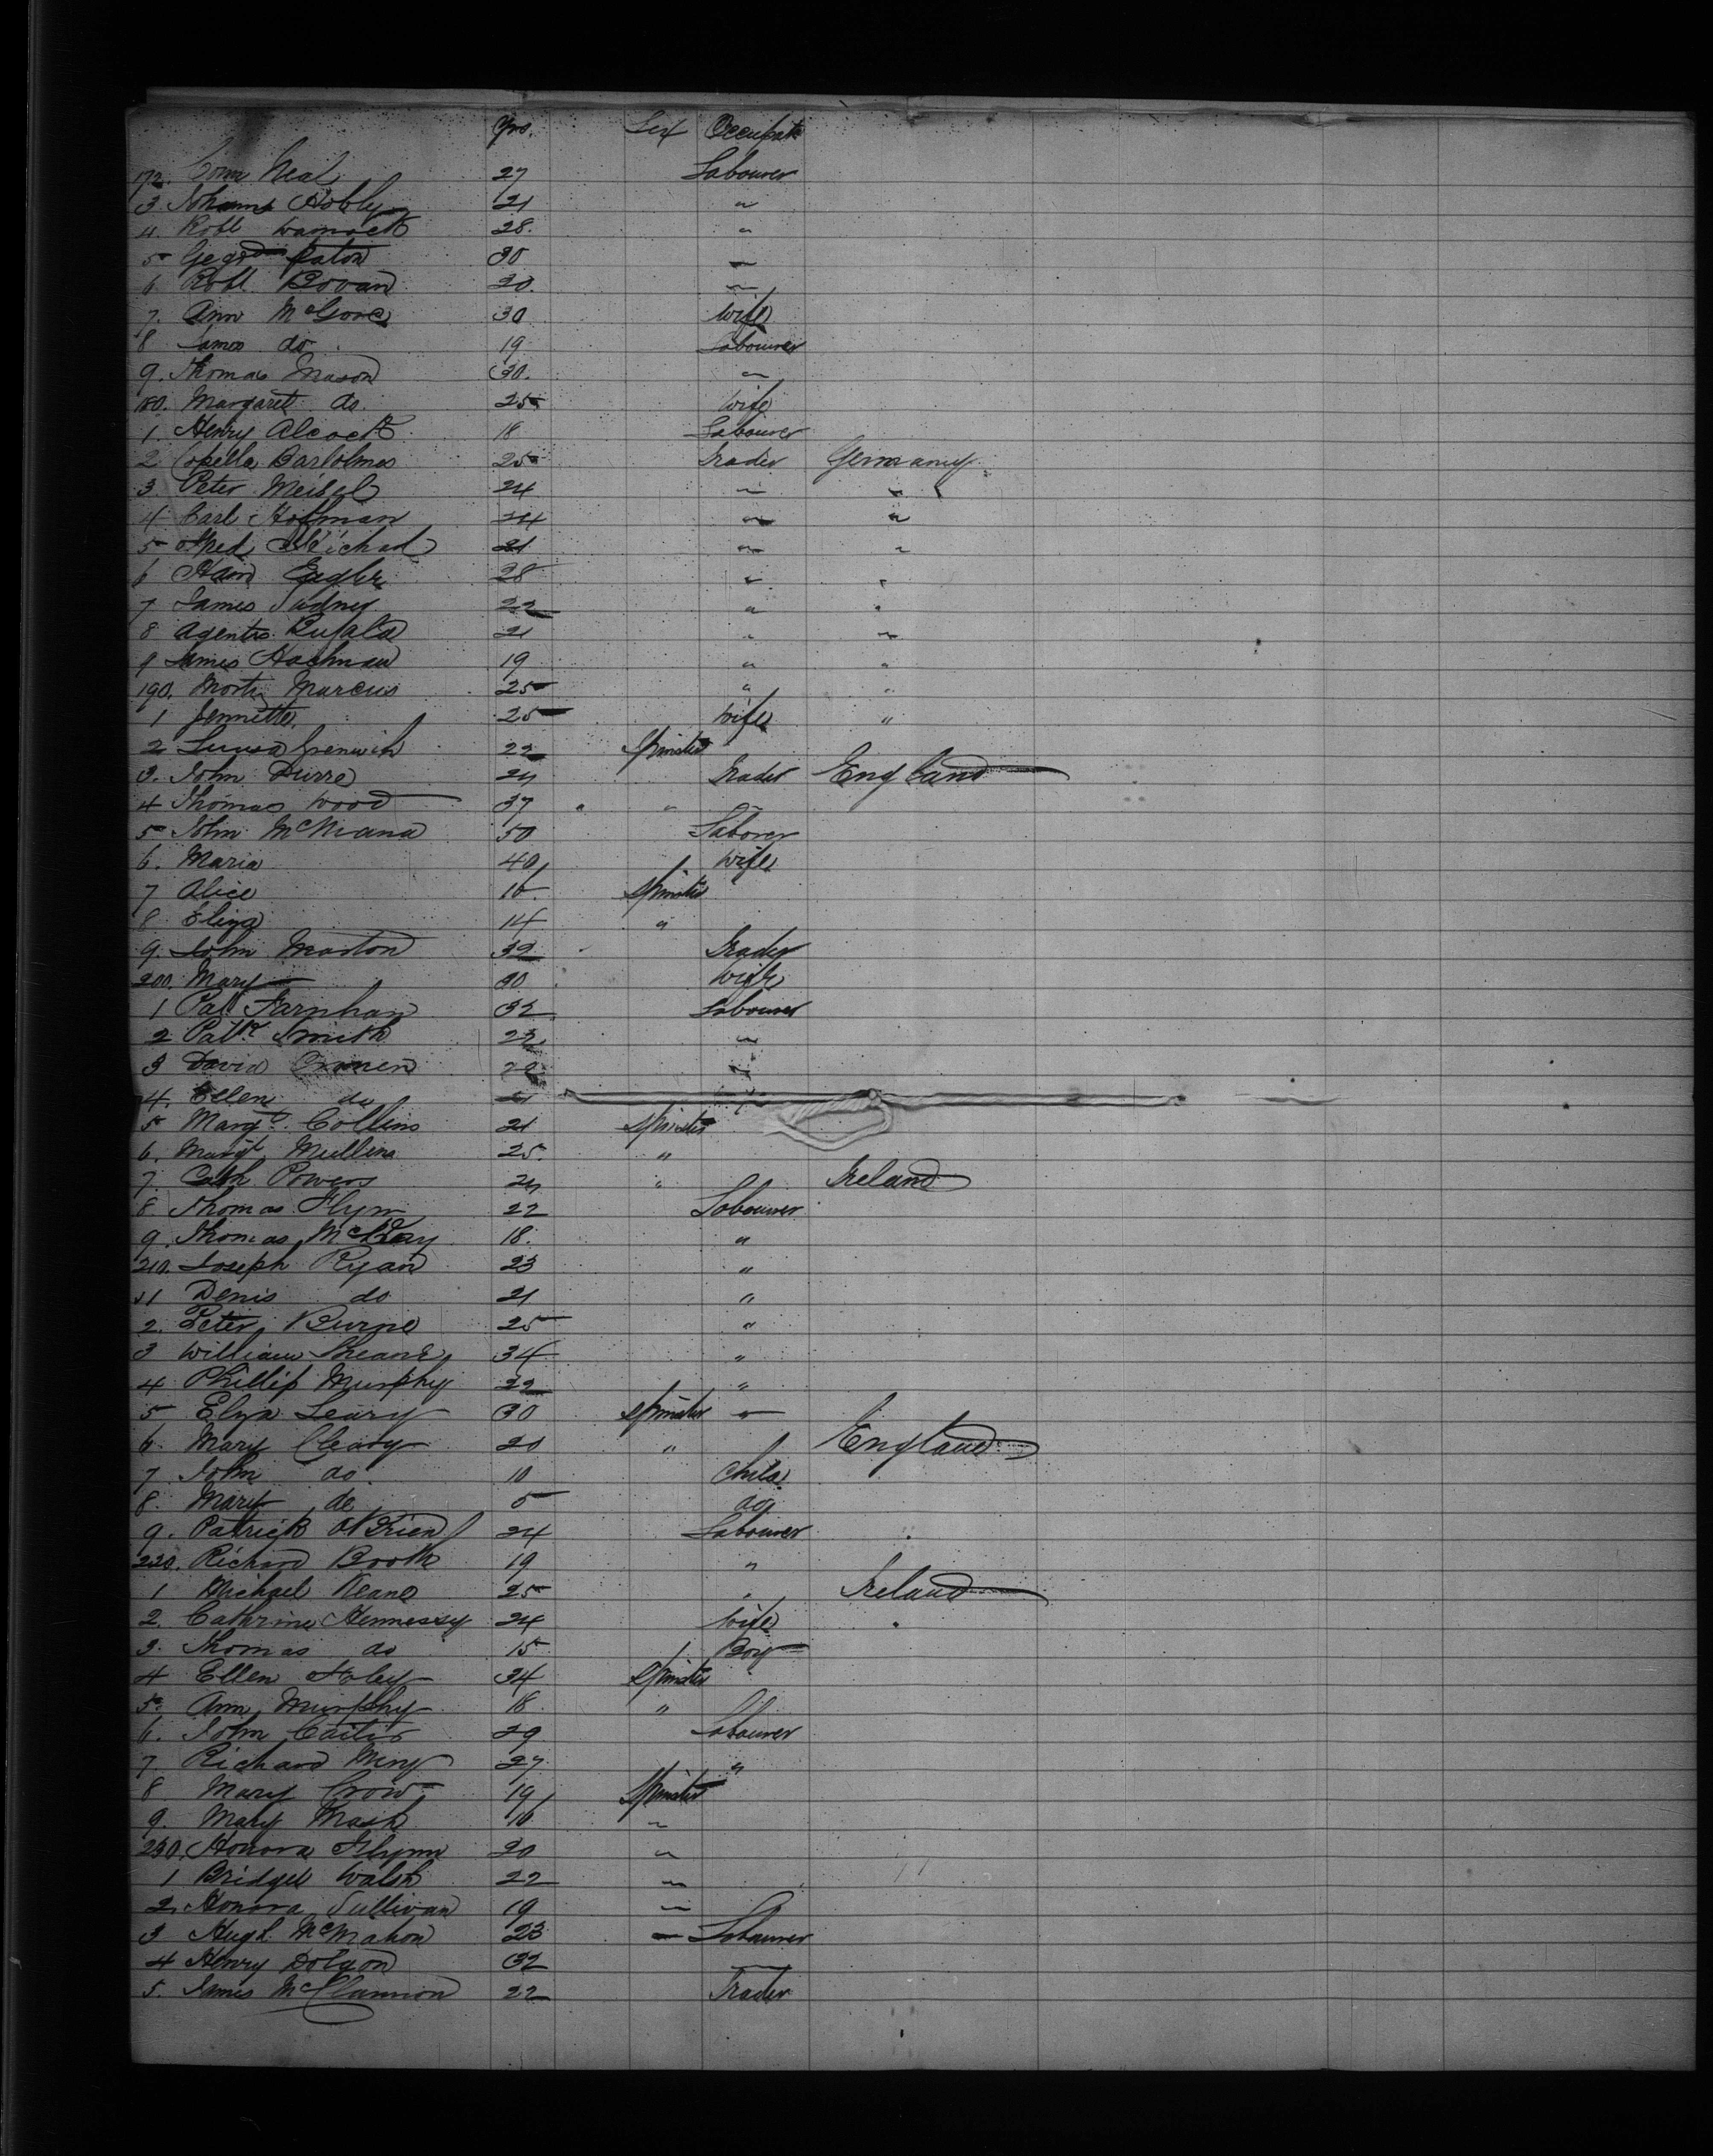 Yrs. Sex Occupatn
172. Neal 27 Labourer
3. 21 "
4. Robt Warnock 28. "
5 Paton 30 "
6 Robt Bovan 20. "
7. Ann McGone 30 Wife
8 James do. 19 Labourer
9. Thomas Mason 30. "
180. Margaret do. 25 Wife
1. Henry Alcock 18 Labourer
2 Copella Bartolmes 25 Trader Germany
3. Peter Meisel 24 " "
4 Carl Hofman 24 " "
5 Michael 21 " "
6 Eagler 28 " "
7 James Sudney 22 " "
8 21 " "
9 James Hachman 19 " "
190. Marcus 25 " "
1 Jennette 25 Wife "
2 Luisa Grenwich 22 Spinster
3. John Durre 24 Trader England
4 Thomas Wood 37 " "
5 John 50 Laborer
6. Maria 40 Wife
7 Alice 16 Spinster
8 Eliza 14 "
9. John Marton 32 Trader
200. Mary 30 Wife
1 Pat Farnhan 32 Labourer
2 Patk Smith 22 "
3 David "
4. Ellen do 21
5 Margt. Collins 21 Spinster
6. Margt Mullins 25. "
7. Cath Powers 24 " Ireland
8 Thomas Flyn 22 Labourer
9. Thomas 18. "
210. Joseph Ryan 23 "
11 Denis do 21 "
2. Peter Burne 25 "
3 William Sheane 34 "
4 Phillip Murphy 22 "
5 Elza Leary 30 Spinster "
6. Mary Cleary 20 " England
7 John do 10 Child
8. Mary do 5 do
9. Patrick O'Brien 24 Labourer
220. Richard Booth 19 "
1 Michael Keane 25 " Ireland
2. Cathrine Hennessy 24 Wife "
3. Thomas do 15 Boy
4 Ellen Foley 34 Spinster
5. Ann Murphy 18 "
6. John 29 Labourer
7. Richard 27 "
8 Mary Crow 19 Spinster
9. Mary Nash 16 "
230. Honora Flynn 20 "
1 Bridget Walsh 22 "
2. Honora Sullivan 19 "
3 Hugh McMahon 23 " Labourer
4 Henry Dolgon 32
5. James McClannon 22 Trader